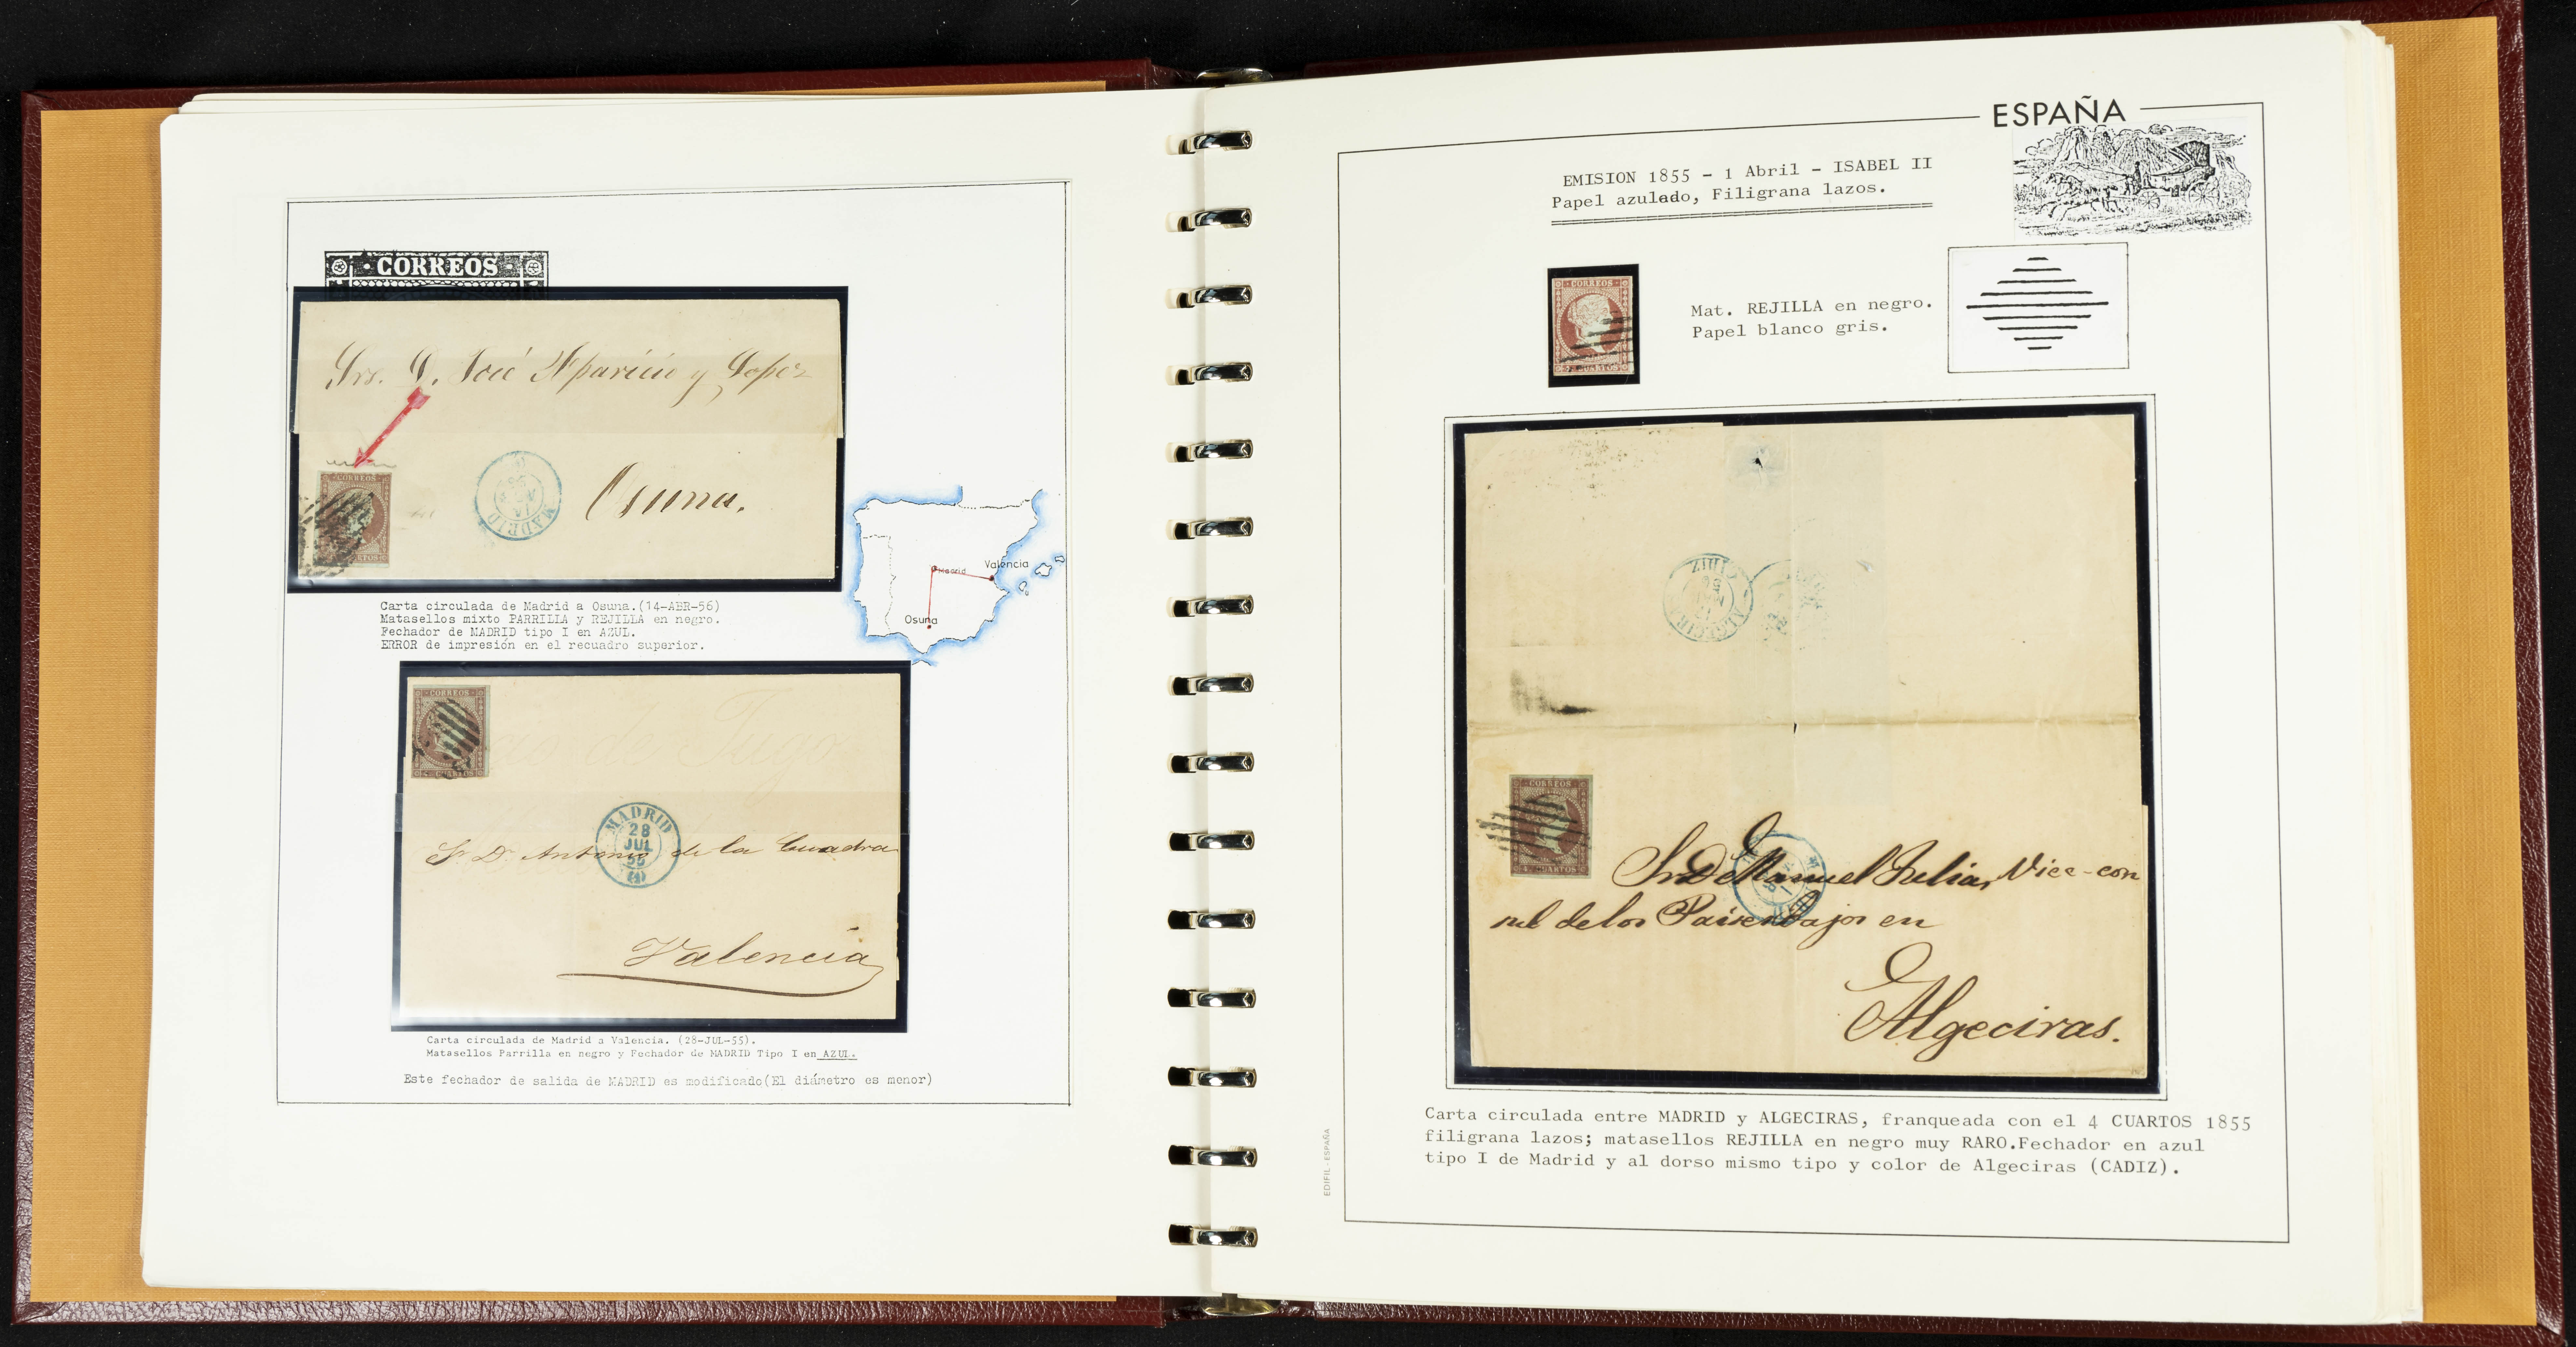 CORREOS
Srs. D. José Aparicio y Lopez
CORREOS
MADRID
Osuna.
Madrid
Valencia
Osuna
Carta circulada de Madrid a Osuna.(14-ABR-56)
Matasellos mixto PARRILLA y REJILLA en negro.
Fechador de MADRID tipo I en AZUL.
ERROR de impresión en el recuadro superior.
CORREOS
4 CUARTOS
MADRID
28
JUL
55
(1)
Sr. D. Antonio de la Cuadra
Valencia
Carta circulada de Madrid a Valencia. (28-JUL-55).
Matasellos Parrilla en negro y Fechador de MADRID Tipo I en AZUL.
Este fechador de salida de MADRID es modificado(El diámetro es menor)
ESPAÑA
EMISION 1855 - 1 Abril - ISABEL II
Papel azulado, Filigrana lazos.
CORREOS
CUARTOS
Mat. REJILLA en negro.
Papel blanco gris.
CORREOS
4 CUARTOS
Sr D Manuel Julian, Vice-con
sul de los Paises bajos en
Algeciras.
Carta circulada entre MADRID y ALGECIRAS, franqueada con el 4 CUARTOS 1855
filigrana lazos; matasellos REJILLA en negro muy RARO.Fechador en azul
tipo I de Madrid y al dorso mismo tipo y color de Algeciras (CADIZ).
EDIFIL - ESPAÑA